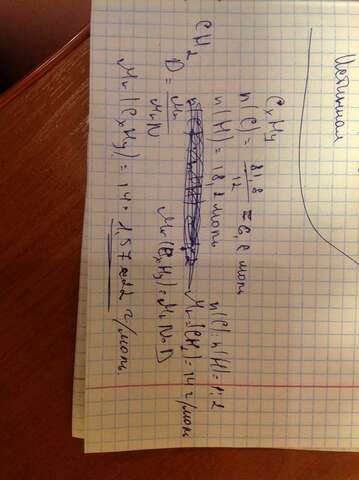 Истинная
CxHy
n(C) = 81,8 / 12 ≈ 6,8 моль
n(H) = 18,2 моль n(C):n(H) = 1:2
CH2 Mr=(CH2) = 14 г/моль
D = Mr / Mr N Mr(CxHy) = Mr N · D
Mr(CxHy) = 14 · 1,57 ≈ 22 г/моль.